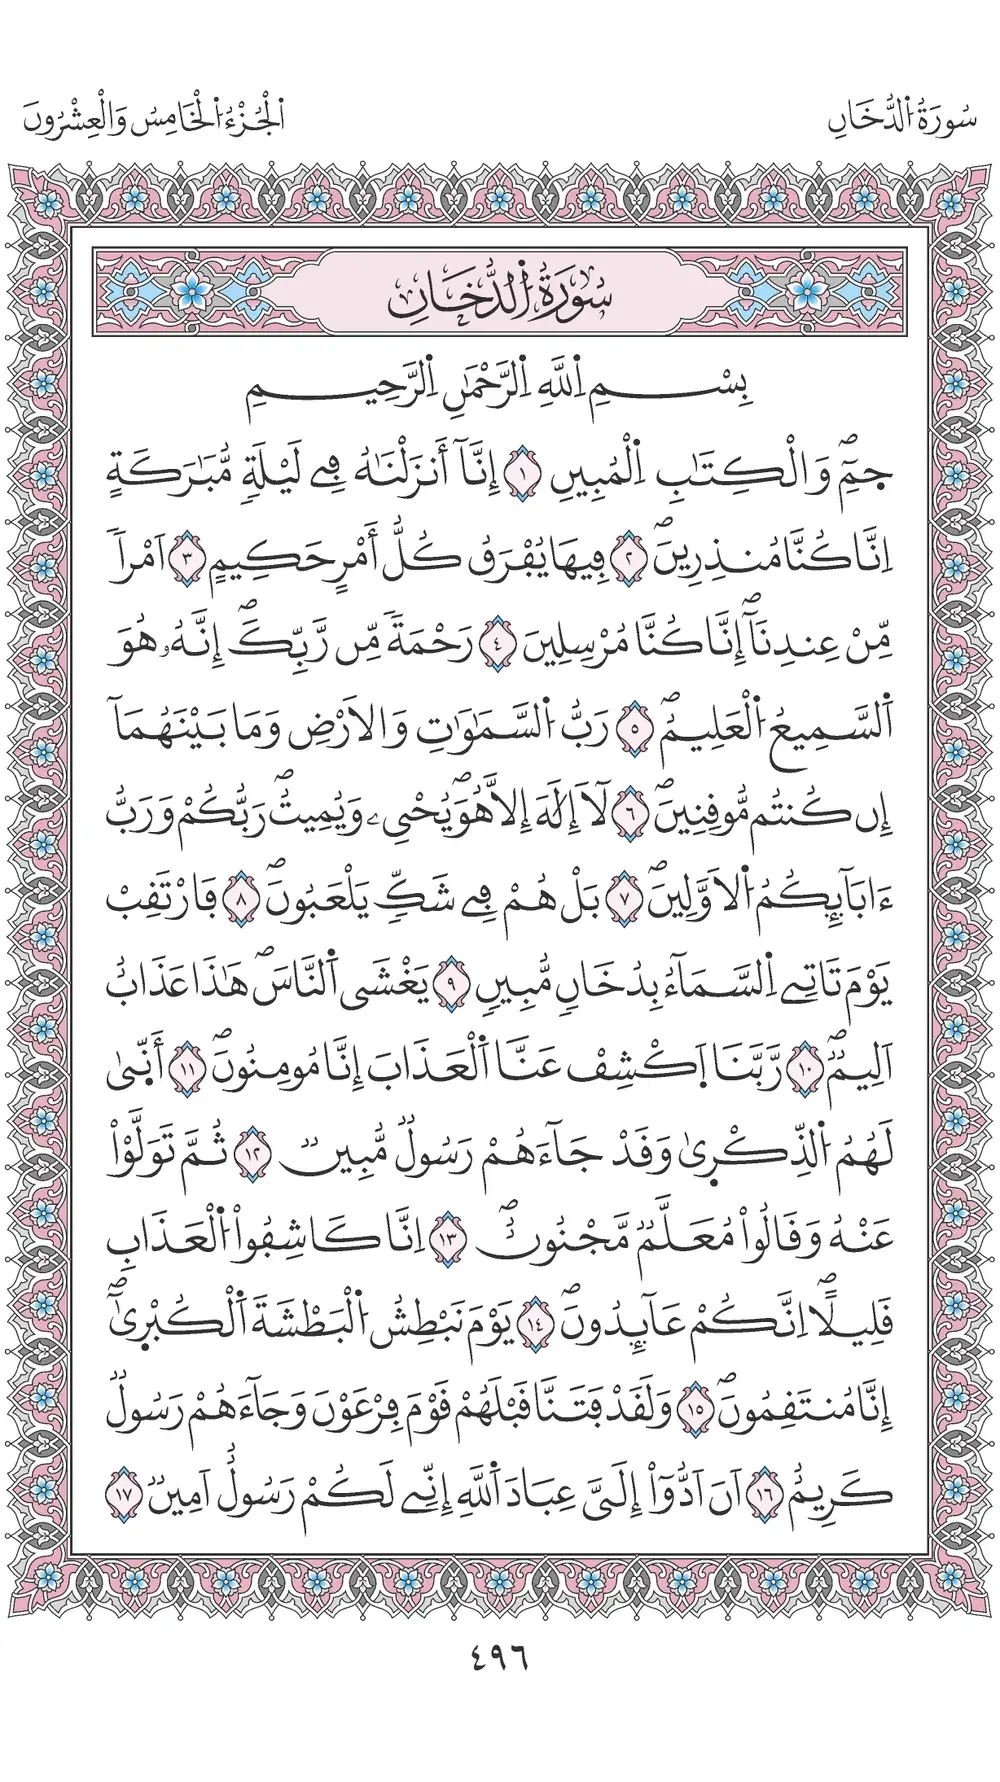 سُورَةُ اُ۬لدُّخَانِ
اَ۬لْجُزْءُ اُ۬لْخَامِسُ وَالْعِشْرُونَ
سُورَةُ اُ۬لدُّخَانِ
بِسْمِ اِ۬للَّهِ اِ۬لرَّحْمَٰنِ اِ۬لرَّحِيمِ
حمٓۖ وَالْكِتَٰبِ اِ۬لْمُبِينِ ١ إِنَّآ أَنزَلْنَٰهُ فِے لَيْلَةٖ مُّبَٰرَكَةٍ
اِنَّا كُنَّا مُنذِرِينَۖ ٢ فِيهَا يُفْرَقُ كُلُّ أَمْرٍ حَكِيمٍ ٣ اَمْراٗ
مِّنْ عِندِنَآۖ إِنَّا كُنَّا مُرْسِلِينَ ٤ رَحْمَةٗ مِّن رَّبِّكَۖ إِنَّهُۥ هُوَ
اَ۬لسَّمِيعُ اُ۬لْعَلِيمُۖ ٥ رَبُّ اُ۬لسَّمَٰوَٰتِ وَالَارْضِ وَمَا بَيْنَهُمَآ
إِن كُنتُم مُّوقِنِينَۖ ٦ لَآ إِلَٰهَ إِلَّا هُوَۖ يُحْيِۦ وَيُمِيتُۖ رَبُّكُمْ وَرَبُّ
ءَابَآئِكُمُ اُ۬لَاوَّلِينَۖ ٧ بَلْ هُمْ فِے شَكّٖ يَلْعَبُونَۖ ٨ فَارْتَقِبْ
يَوْمَ تَاتِے اِ۬لسَّمَآءُ بِدُخَانٖ مُّبِينٖ ٩ يَغْشَي اَ۬لنَّاسَۖ هَٰذَا عَذَابٌ
اَلِيمٌۖ ١٠ رَّبَّنَا اَ۪كْشِفْ عَنَّا اَ۬لْعَذَابَ إِنَّا مُومِنُونَۖ ١١ أَنّ۪يٰ
لَهُمُ اُ۬لذِّكْر۪يٰ وَقَدْ جَآءَهُمْ رَسُولٞ مُّبِينٞ ١٢ ثُمَّ تَوَلَّوْاْ
عَنْهُ وَقَالُواْ مُعَلَّمٞ مَّجْنُونٌۖ ١٣ اِنَّا كَاشِفُواْ اُ۬لْعَذَابِ
قَلِيلًاۖ اِنَّكُمْ عَآئِدُونَۖ ١٤ يَوْمَ نَبْطِشُ اُ۬لْبَطْشَةَ اَ۬لْكُبْر۪يٰٓۖ
إِنَّا مُنتَقِمُونَۖ ١٥ وَلَقَدْ فَتَنَّا قَبْلَهُمْ قَوْمَ فِرْعَوْنَ وَجَآءَهُمْ رَسُولٞ
كَرِيمٌ ١٦ اَنَ اَدُّوٓاْ إِلَيَّ عِبَادَ اَ۬للَّهِ إِنِّے لَكُمْ رَسُولٌ اَمِينٞ ١٧
٤٩٦